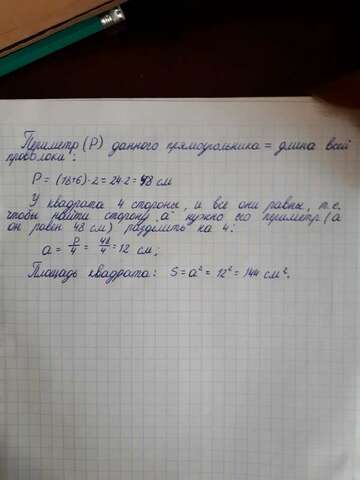 Периметр (P) данного прямоугольника = длина всей
проволоки:
P = (18+6)·2 = 24·2 = 48 см
У квадрата 4 стороны, и все они равны, т.е.
чтобы найти сторону "a" нужно его периметр (а
он равен 48 см) разделить на 4:
a = P/4 = 48/4 = 12 см;
Площадь квадрата: S = a² = 12² = 144 см².